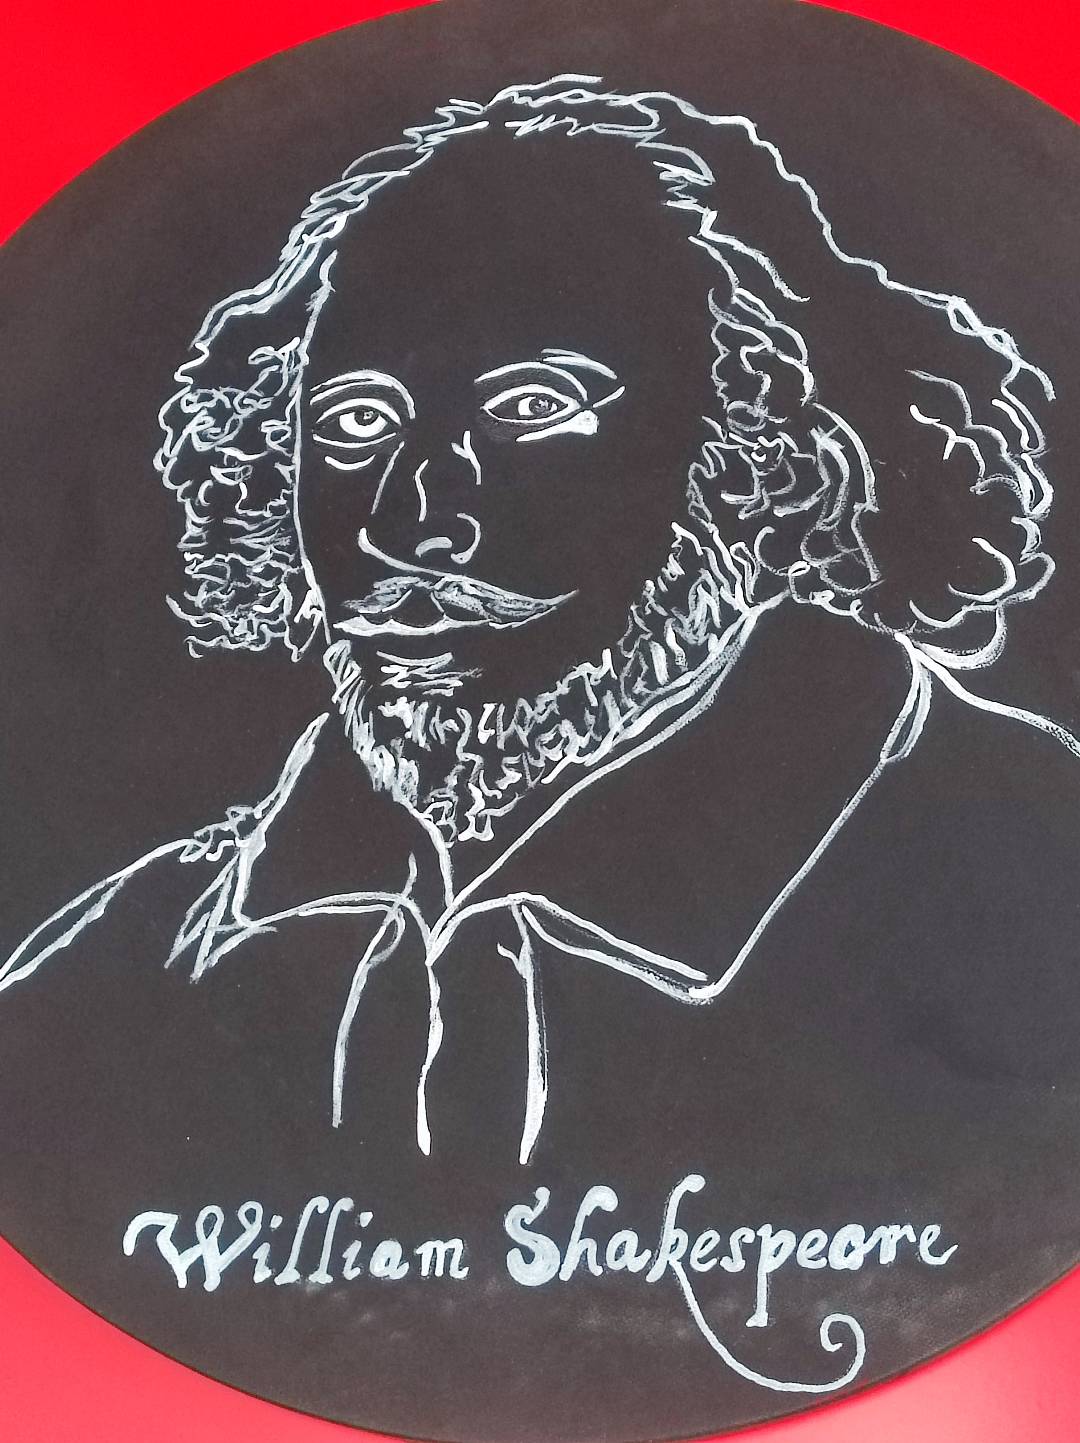 William Shakespeare